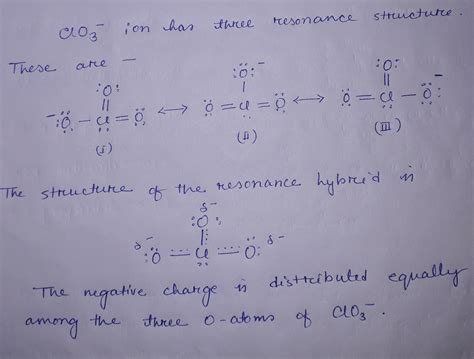 ClO₃⁻ ion has three resonance structure.
These are —
:O: :Ö:⁻ :O:
⁻:Ö — Cl = Ö ⟷ Ö = Cl = Ö ⟷ Ö = Cl — Ö:⁻
(I) (II) (III)
The structure of the resonance hybrid is
δ−
:O:
δ− :Ö ···· Cl ···· O: δ−
The negative charge is distributed equally
among the three O-atoms of ClO₃⁻.